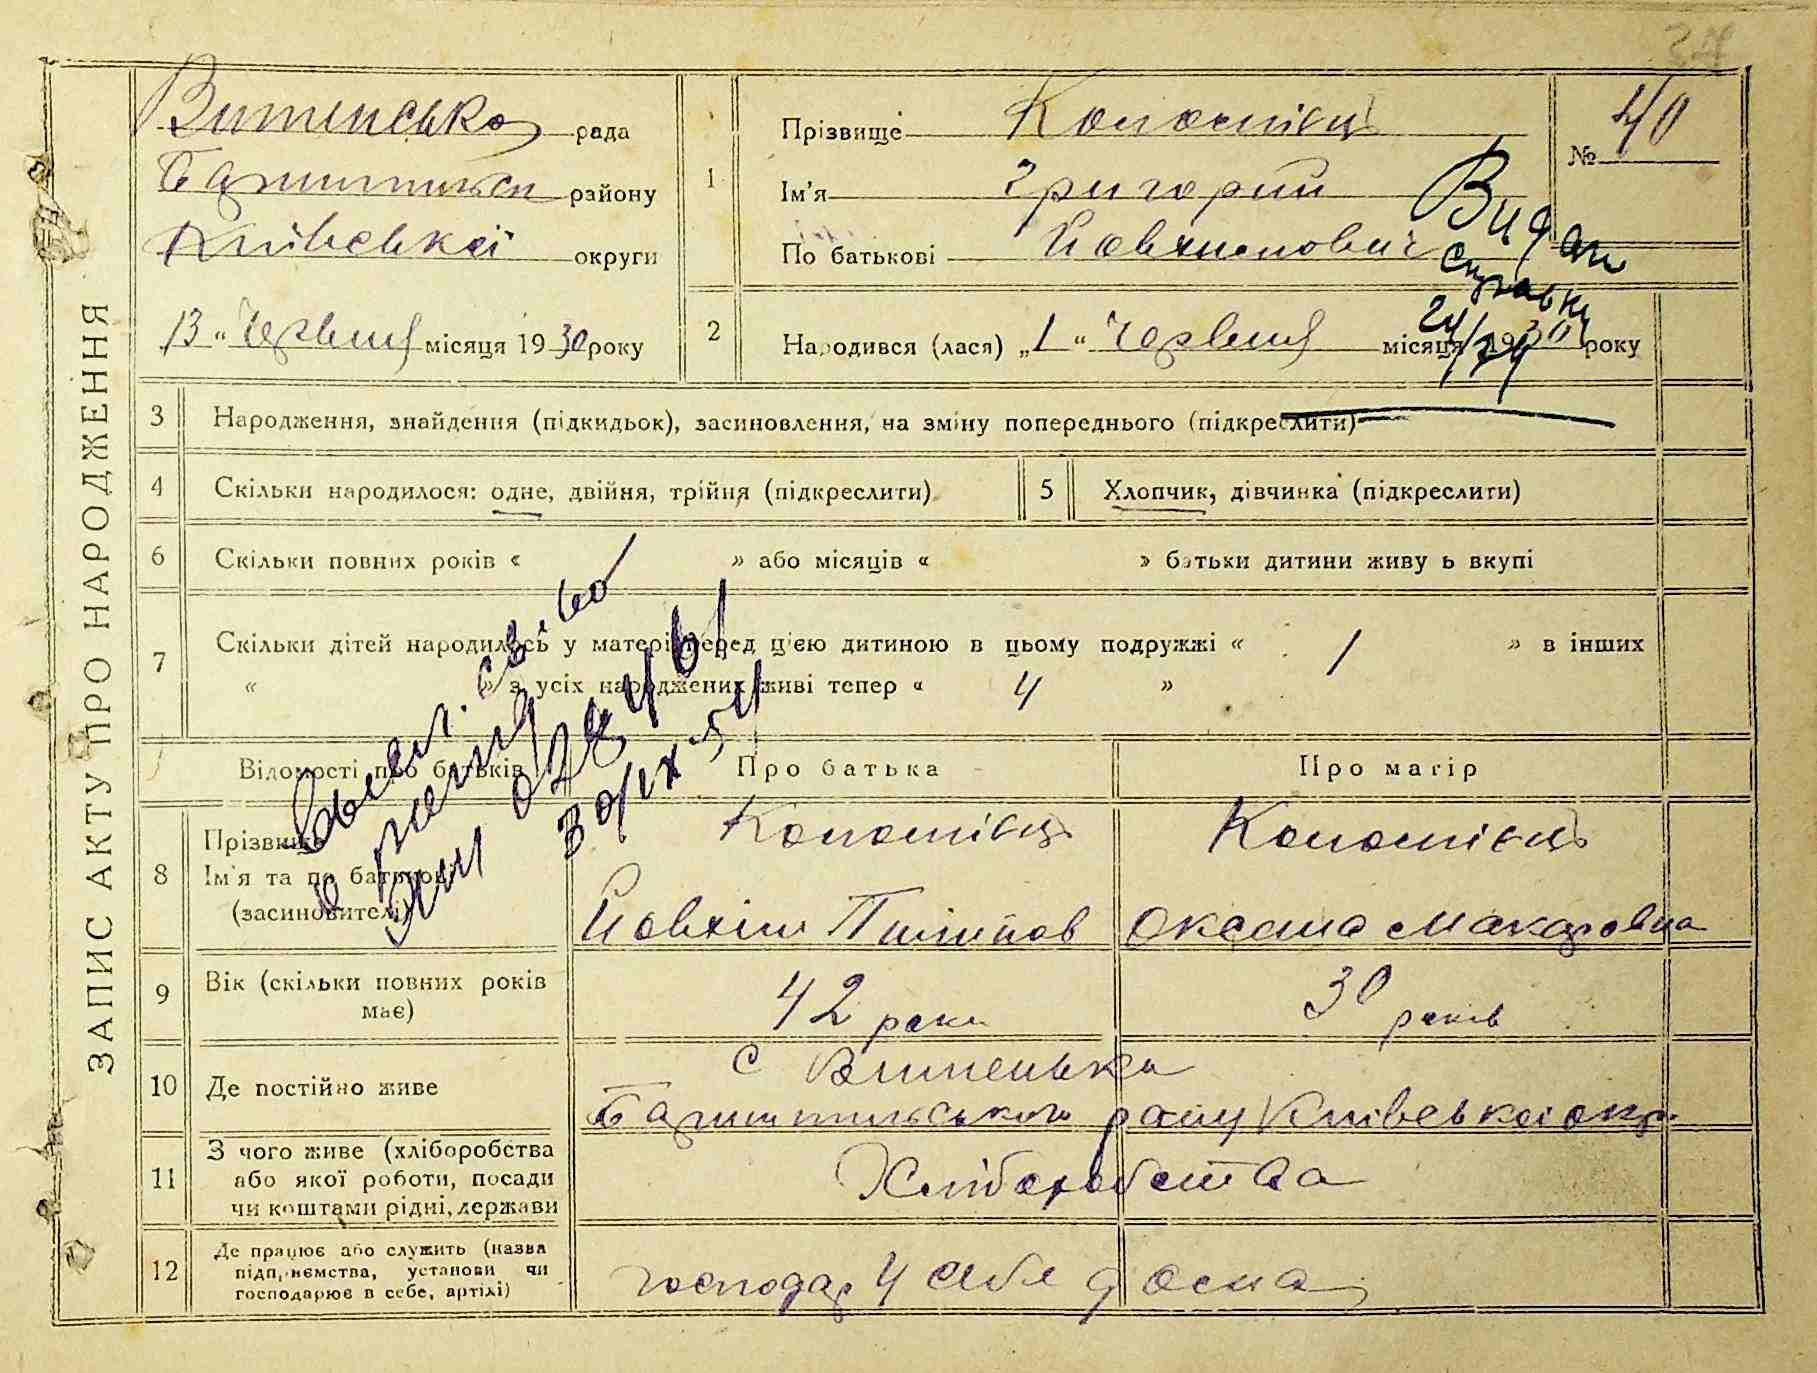 ЗАПИС АКТУ ПРО НАРОДЖЕННЯ
Вишенська рада
району
Київської округи
13 " Червня місяця 1930 року
1
Прізвище Коломієць
Ім'я Григорий
По батькові Йовхимович
№ 40
Видан
справку
2
Народився (лася) „1 " Червня місяця 1930 року
3 Народження, знайдення (підкидьок), засиновлення, на зміну попереднього (підкреслити)
4 Скільки народилося: одне, двійня, трійня (підкреслити)
5 Хлопчик, дівчинка (підкреслити)
6 Скільки повних років « » або місяців « » батьки дитини живу ь вкупі
7 Скільки дітей народилось у матері перед цією дитиною в цьому подружжі « 1 » в інших
« » з усіх народжених живі тепер « 4 »
Відомості про батьків Про батька Про матір
8 Прізвище
Ім'я та по батькові
(засиновителі)
Коломієць Коломієць
Йовхім Пилипов Оксана Макаровна
9 Вік (скільки повних років
має)
42 роки 30 років
10 Де постійно живе
с Вишенька
Баришпильського райну Київської окр.
11 З чого живе (хліборобства
або якої роботи, посади
чи коштами рідні, держави
Хліборобства
12 Де працює або служить (назва
підприємства, установи чи
господарює в себе, артілі)
господар у себе дома